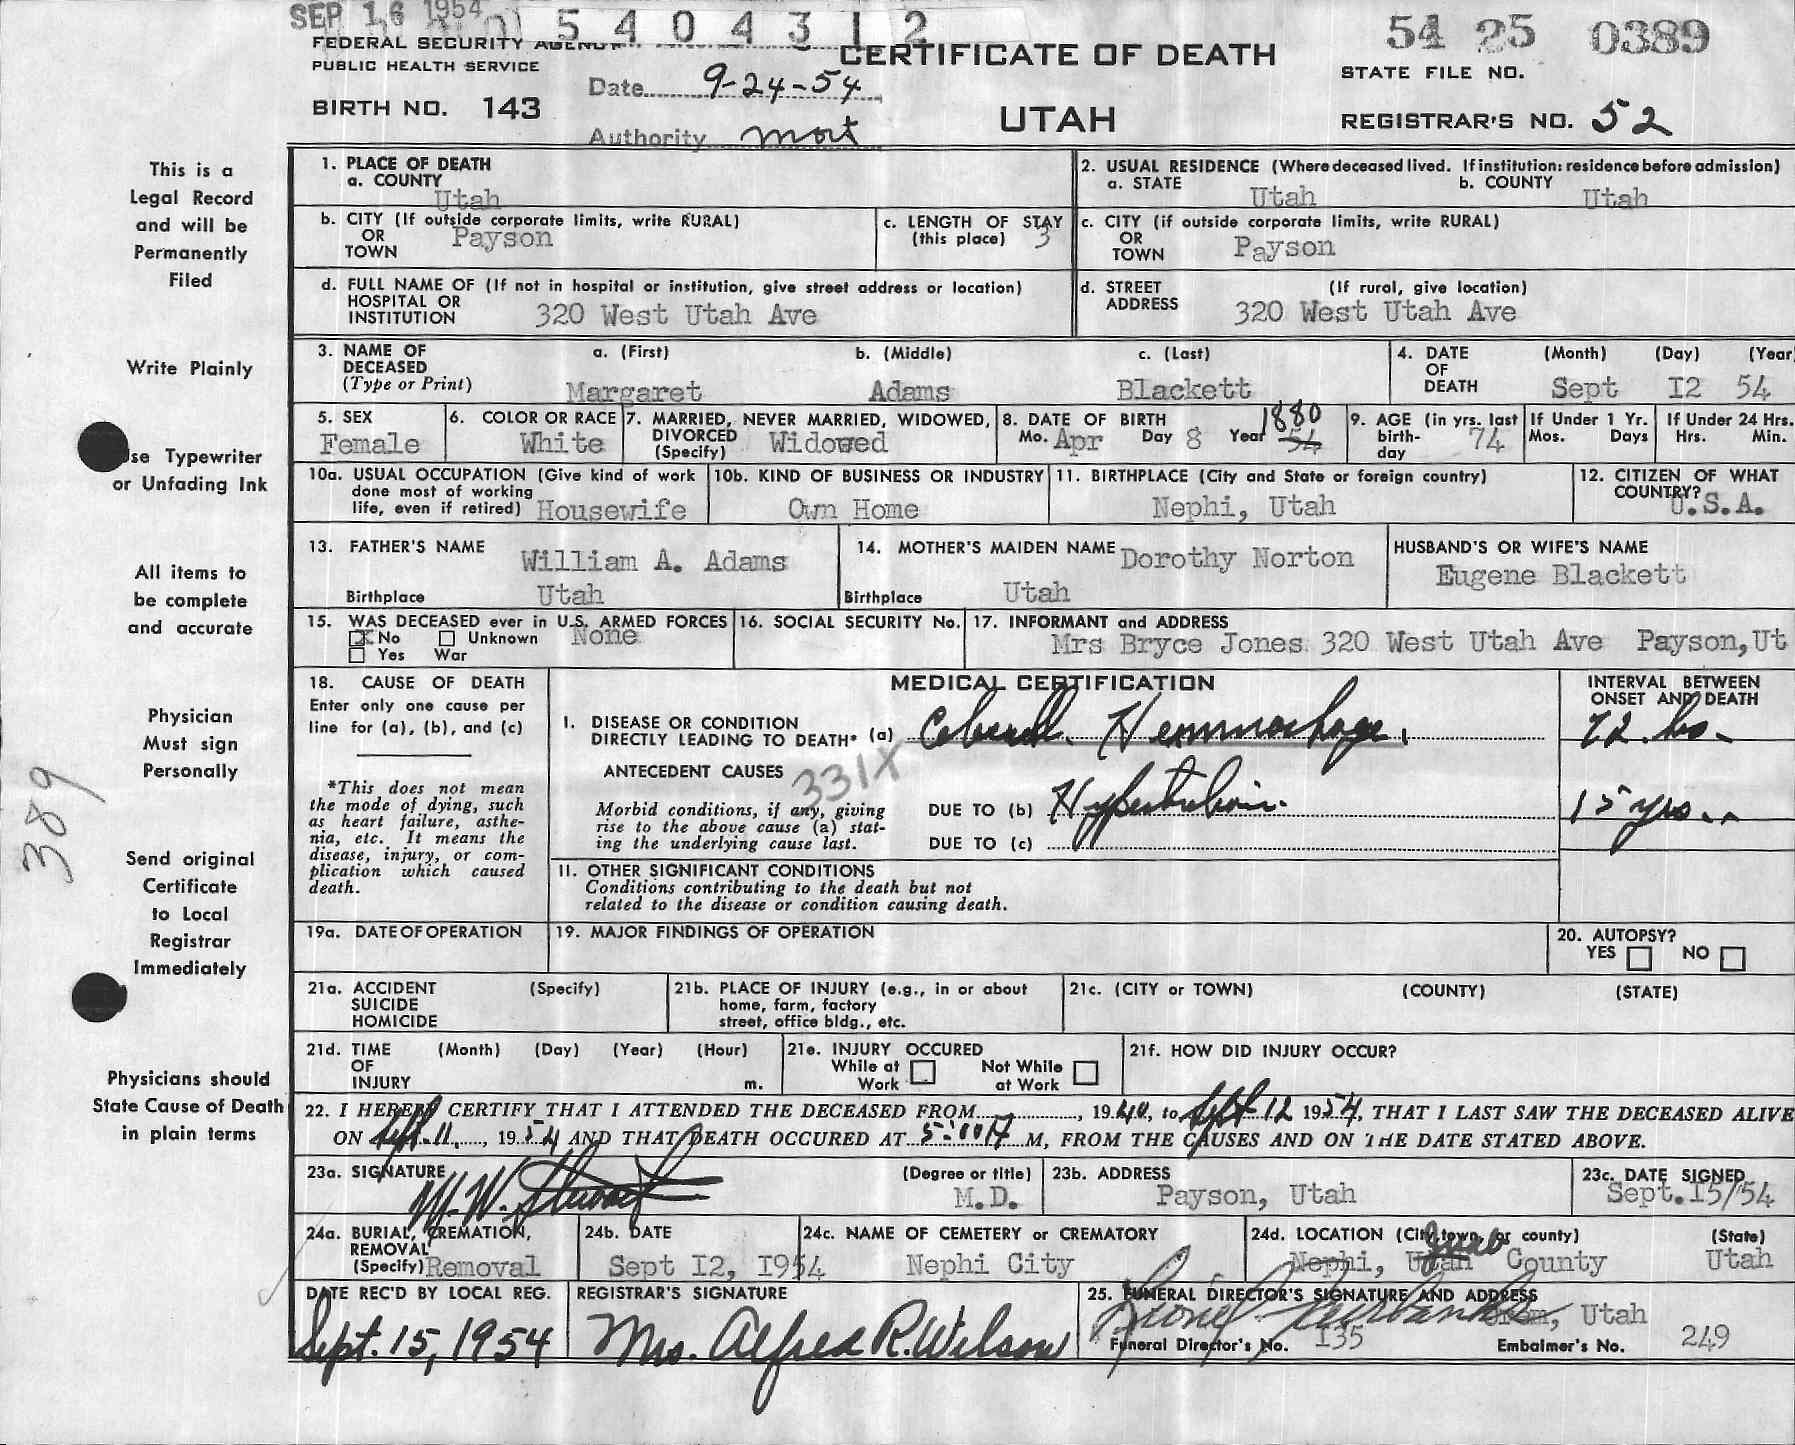 SEP 16 1954 5404312
54 25 0389
FEDERAL SECURITY AGENCY
CERTIFICATE OF DEATH
PUBLIC HEALTH SERVICE
STATE FILE NO.
Date 9-24-54
BIRTH NO. 143
UTAH
REGISTRAR'S NO. 52
Authority mort
This is a
Legal Record
and will be
Permanently
Filed
Write Plainly
se Typewriter
or Unfading Ink
All items to
be complete
and accurate
Physician
Must sign
Personally
389
Send original
Certificate
to Local
Registrar
Immediately
Physicians should
State Cause of Death
in plain terms
1. PLACE OF DEATH
a. COUNTY
Utah
2. USUAL RESIDENCE (Where deceased lived. If institution: residence before admission)
a. STATE Utah b. COUNTY Utah
b. CITY (If outside corporate limits, write RURAL)
OR
TOWN Payson
c. LENGTH OF STAY
(this place) 3
c. CITY (if outside corporate limits, write RURAL)
OR
TOWN Payson
d. FULL NAME OF (If not in hospital or institution, give street address or location)
HOSPITAL OR
INSTITUTION 320 West Utah Ave
d. STREET (If rural, give location)
ADDRESS 320 West Utah Ave
3. NAME OF a. (First) b. (Middle) c. (Last)
DECEASED
(Type or Print) Margaret Adams Blackett
4. DATE (Month) (Day) (Year
OF
DEATH Sept I2 54
5. SEX
Female
6. COLOR OR RACE
White
7. MARRIED, NEVER MARRIED, WIDOWED,
DIVORCED
(Specify) Widowed
8. DATE OF BIRTH 1880
Mo. Apr Day 8 Year 54
9. AGE (in yrs. last
birth-
day 74
If Under 1 Yr.
Mos. Days
If Under 24 Hrs.
Hrs. Min.
10a. USUAL OCCUPATION (Give kind of work
done most of working
life, even if retired) Housewife
10b. KIND OF BUSINESS OR INDUSTRY
Own Home
11. BIRTHPLACE (City and State or foreign country)
Nephi, Utah
12. CITIZEN OF WHAT
COUNTRY?
U.S.A.
13. FATHER'S NAME William A. Adams
Birthplace Utah
14. MOTHER'S MAIDEN NAME Dorothy Norton
Birthplace Utah
HUSBAND'S OR WIFE'S NAME
Eugene Blackett
15. WAS DECEASED ever in U.S. ARMED FORCES
X No Unknown None
Yes War
16. SOCIAL SECURITY No.
17. INFORMANT and ADDRESS
Mrs Bryce Jones 320 West Utah Ave Payson,Ut
18. CAUSE OF DEATH
Enter only one cause per
line for (a), (b), and (c)
*This does not mean
the mode of dying, such
as heart failure, asthe-
nia, etc. It means the
disease, injury, or com-
plication which caused
death.
MEDICAL CERTIFICATION
INTERVAL BETWEEN
ONSET AND DEATH
I. DISEASE OR CONDITION
DIRECTLY LEADING TO DEATH* (a) Cerebral Hemmorhage. 72 hs.
ANTECEDENT CAUSES 331X
Morbid conditions, if any, giving
rise to the above cause (a) stat-
ing the underlying cause last.
DUE TO (b) Hypertension. 15 yrs.
DUE TO (c)
II. OTHER SIGNIFICANT CONDITIONS
Conditions contributing to the death but not
related to the disease or condition causing death.
19a. DATE OF OPERATION
19. MAJOR FINDINGS OF OPERATION
20. AUTOPSY?
YES NO
21a. ACCIDENT (Specify)
SUICIDE
HOMICIDE
21b. PLACE OF INJURY (e.g., in or about
home, farm, factory
street, office bldg., etc.
21c. (CITY or TOWN) (COUNTY) (STATE)
21d. TIME (Month) (Day) (Year) (Hour)
OF
INJURY m.
21e. INJURY OCCURED
While at Not While
Work at Work
21f. HOW DID INJURY OCCUR?
22. I HEREBY CERTIFY THAT I ATTENDED THE DECEASED FROM , 1940, to Sept 12 1954, THAT I LAST SAW THE DECEASED ALIVE
ON Sept. 11, 1954 AND THAT DEATH OCCURED AT 5:00 A M, FROM THE CAUSES AND ON THE DATE STATED ABOVE.
23a. SIGNATURE (Degree or title)
M.D.
23b. ADDRESS
Payson, Utah
23c. DATE SIGNED
Sept.I5/54
24a. BURIAL, CREMATION,
REMOVAL
(Specify) Removal
24b. DATE
Sept I2, I954
24c. NAME OF CEMETERY or CREMATORY
Nephi City
24d. LOCATION (City, town, or county) (State)
Juab
Nephi, Utah County Utah
DATE REC'D BY LOCAL REG.
Sept. 15, 1954
REGISTRAR'S SIGNATURE
Mrs. Alfred R. Wilson
25. FUNERAL DIRECTOR'S SIGNATURE AND ADDRESS
Orem, Utah
Funeral Director's No. I35 Embalmer's No. 249